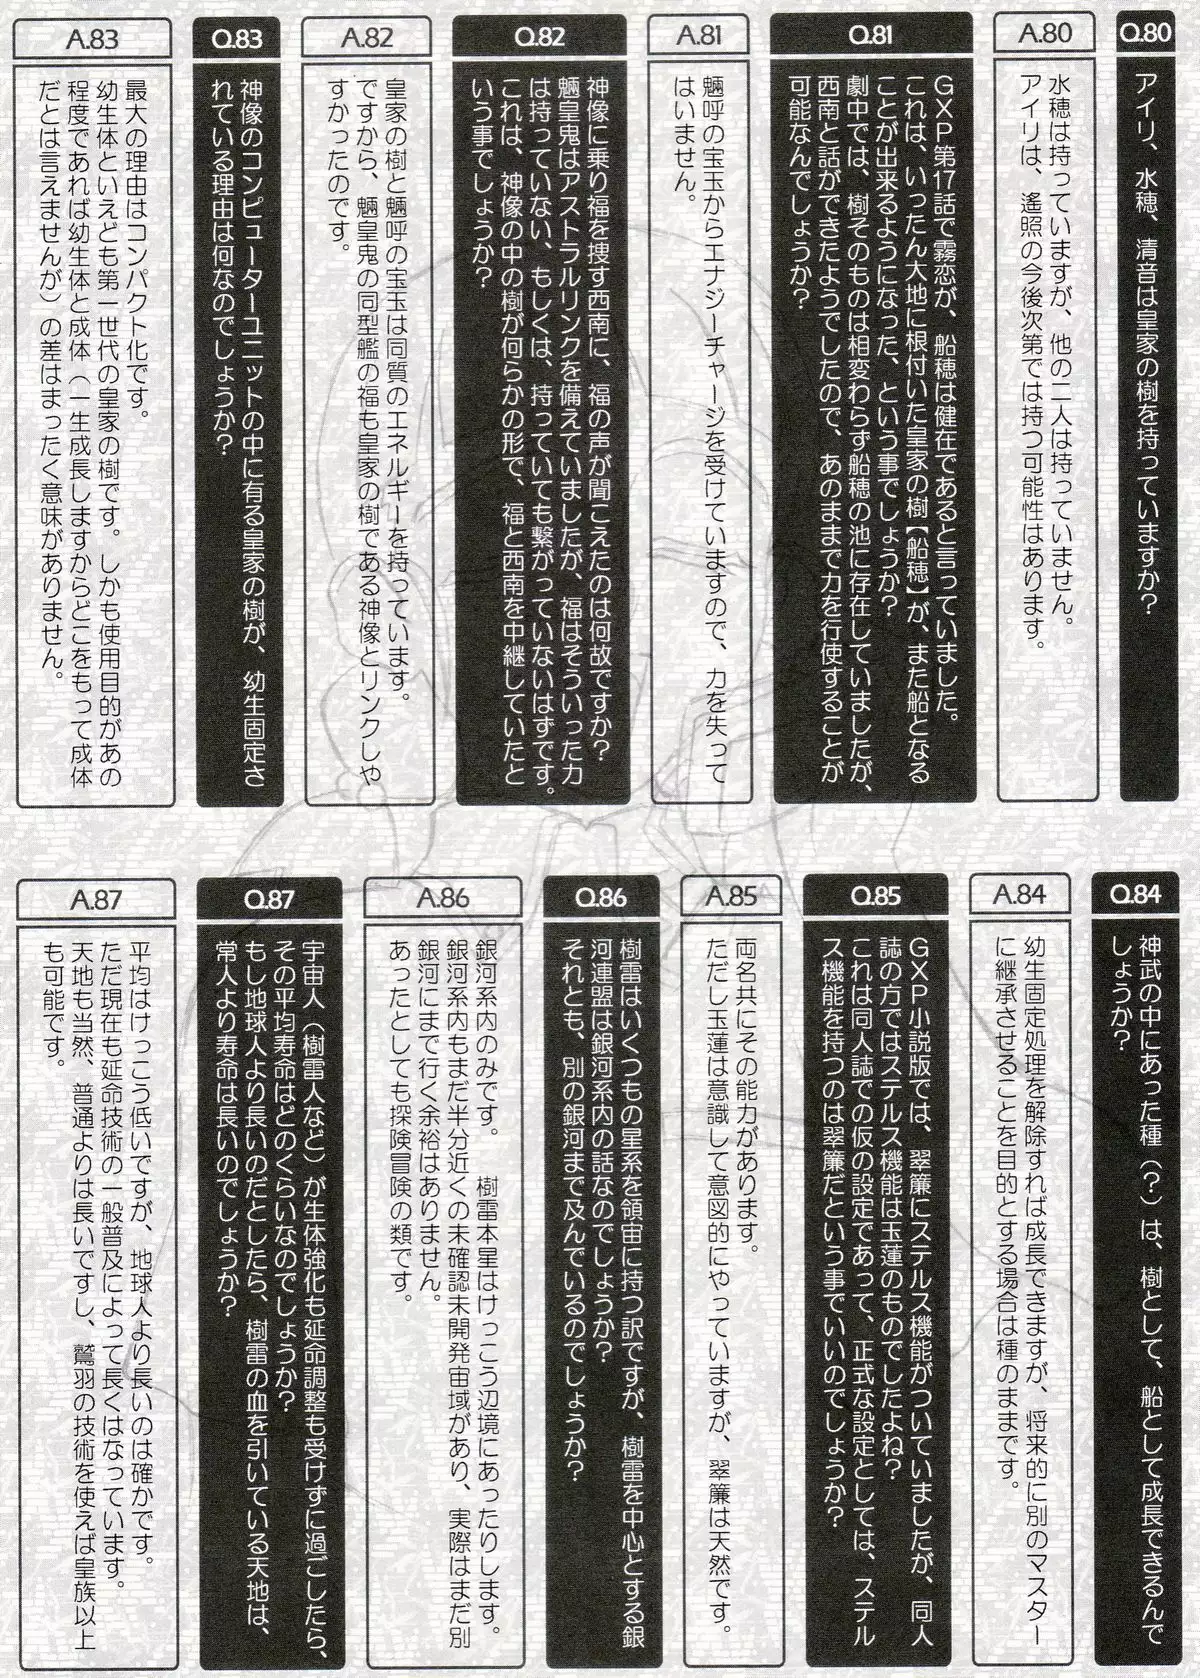 Q.80
アイリ、水穂、清音は皇家の樹を持っていますか？
A.80
水穂は持っていますが、他の二人は持っていません。
アイリは、遙照の今後次第では持つ可能性はあります。
Q.81
ＧＸＰ第17話で霧恋が、船穂は健在であると言っていました。
これは、いったん大地に根付いた皇家の樹【船穂】が、また船となる
ことが出来るようになった、という事でしょうか？
劇中では、樹そのものは相変わらず船穂の池に存在していましたが、
西南と話ができたようでしたので、あのままで力を行使することが
可能なんでしょうか？
A.81
魎呼の宝玉からエナジーチャージを受けていますので、力を失って
はいません。
Q.82
神像に乗り福を捜す西南に、福の声が聞こえたのは何故ですか？
魎皇鬼はアストラルリンクを備えていましたが、福はそういった力
は持っていない、もしくは、持っていても繋がっていないはずです。
これは、神像の中の樹が何らかの形で、福と西南を中継していたと
いう事でしょうか？
A.82
皇家の樹と魎呼の宝玉は同質のエネルギーを持っています。
ですから、魎皇鬼の同型艦の福も皇家の樹である神像とリンクしや
すかったのです。
Q.83
神像のコンピューターユニットの中に有る皇家の樹が、幼生固定さ
れている理由は何なのでしょうか？
A.83
最大の理由はコンパクト化です。
幼生体といえども第一世代の皇家の樹です。しかも使用目的があの
程度であれば幼生体と成体（一生成長しますからどこをもって成体
だとは言えませんが）の差はまったく意味がありません。
Q.84
神武の中にあった種（？）は、樹として、船として成長できるんで
しょうか？
A.84
幼生固定処理を解除すれば成長できますが、将来的に別のマスター
に継承させることを目的とする場合は種のままです。
Q.85
ＧＸＰ小説版では、翠簾にステルス機能がついていましたが、同人
誌の方ではステルス機能は玉蓮のものでしたよね？
これは同人誌での仮の設定であって、正式な設定としては、ステル
ス機能を持つのは翠簾だという事でいいのでしょうか？
A.85
両名共にその能力があります。
ただし玉蓮は意識して意図的にやっていますが、翠簾は天然です。
Q.86
樹雷はいくつもの星系を領宙に持つ訳ですが、樹雷を中心とする銀
河連盟は銀河系内の話なのでしょうか？
それとも、別の銀河まで及んでいるのでしょうか？
A.86
銀河系内のみです。　樹雷本星はけっこう辺境にあったりします。
銀河系内もまだ半分近くの未確認未開発宙域があり、実際はまだ別
銀河にまで行く余裕はありません。
あったとしても探険冒険の類です。
Q.87
宇宙人（樹雷人など）が生体強化も延命調整も受けずに過ごしたら、
その平均寿命はどのくらいなのでしょうか？
もし地球人より長いのだとしたら、樹雷の血を引いている天地は、
常人より寿命は長いのでしょうか？
A.87
平均はけっこう低いですが、地球人より長いのは確かです。
ただ現在も延命技術の一般普及によって長くはなっています。
天地も当然、普通よりは長いですし、鷲羽の技術を使えば皇族以上
も可能です。